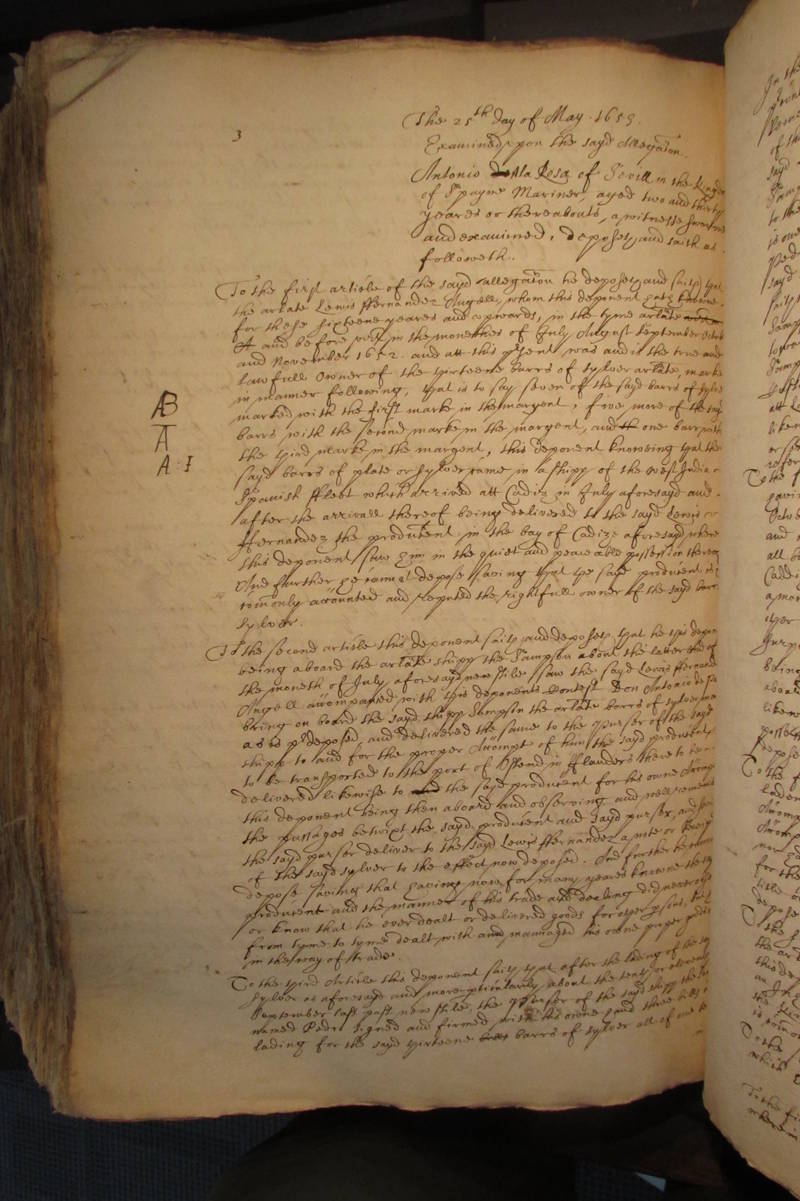 The 25th day of May. 1653.
Examined upon the sayd Allegaton.
3
Antonio de la Resa of Sevill in the
of Spayne Mariner, aged two and thirty
yeares or thereabouts, a witnesse sworne
and examined, deposeth and saith as
followeth.
To the first article of the sayd allegaton he deposeth and saith that
the arlate Lewis Fernandez Angell, whom this deponent hath knowne
for these sixteene yeares and upwards, in the tyme arlate
and before viz in the monethes of July August September
and November 1652. and att this present was and is the true and
lawfull Owner of the thirteene barrs of sylver arlate, marked
in manner following, that is to say seven of the sayd barrs of sylver
AB
marked with the first marke in the margent, five more of the sayd
A
barrs with the second marke in the margent, and one barr with
A : I
the third marke in the margent, this deponent knowing that the
sayd barrs of plate or sylver came in a shipp of the West India
Spanish Fleet which arrived att Cadiz in July aforesayd and
after the arrivall thereof being delivered to the sayd Lewis
Ffernandez the producent in the bay of Cadiz aforesayd where
this deponent saw him in the quiet and peaceable possession thereof
And further he cannot depose saving that the said producent is
comonly accounted and reputed the rightfull owner of the sayd barrs
sylver.
To the second article this deponent saith and deposeth that he this deponent
being aboard the arlate shipp the Sampson about the latter end of
the moneth of July aforesayd new stile saw the sayd Lewis Ffernandez
Angell accompanied with this deponents contest Don Antonio de
bring on board the sayd shipp Sampson the arlate barrs of sylver
as is predeposed, and delivered the same to the purser of the sayd
shipp to and for the proper Accompt of him the sayd producent
to be transported to the port of Ostend in Flanders there to bee
delivered likewise to the sayd producent for his owne Accompt
this deponent being then aboard and observing and
the passages betwixt the sayd producent and sayd purser, and
the sayd purser deliver to the sayd Lewis Ffernandez a note or
of the sayd sylver to the effect now deposed. And further he cannot
depose saving that having now for many yeares knowne the
producent and the manner of his trade and dealing did never
or know that he ever dealt or delivered goods for other
from tyme to tyme dealt with and mannaged his owne proper
in the way of trade.
To the third Article this deponent saith that after the lading of the
sylver as aforesayd and more particularly about the tenth or eleventh
September last past new stile, the purser of the sayd shipp the
named Pedro signed and firmed with his owne hand three bills
lading for the sayd thirteene barrs of sylver all of one